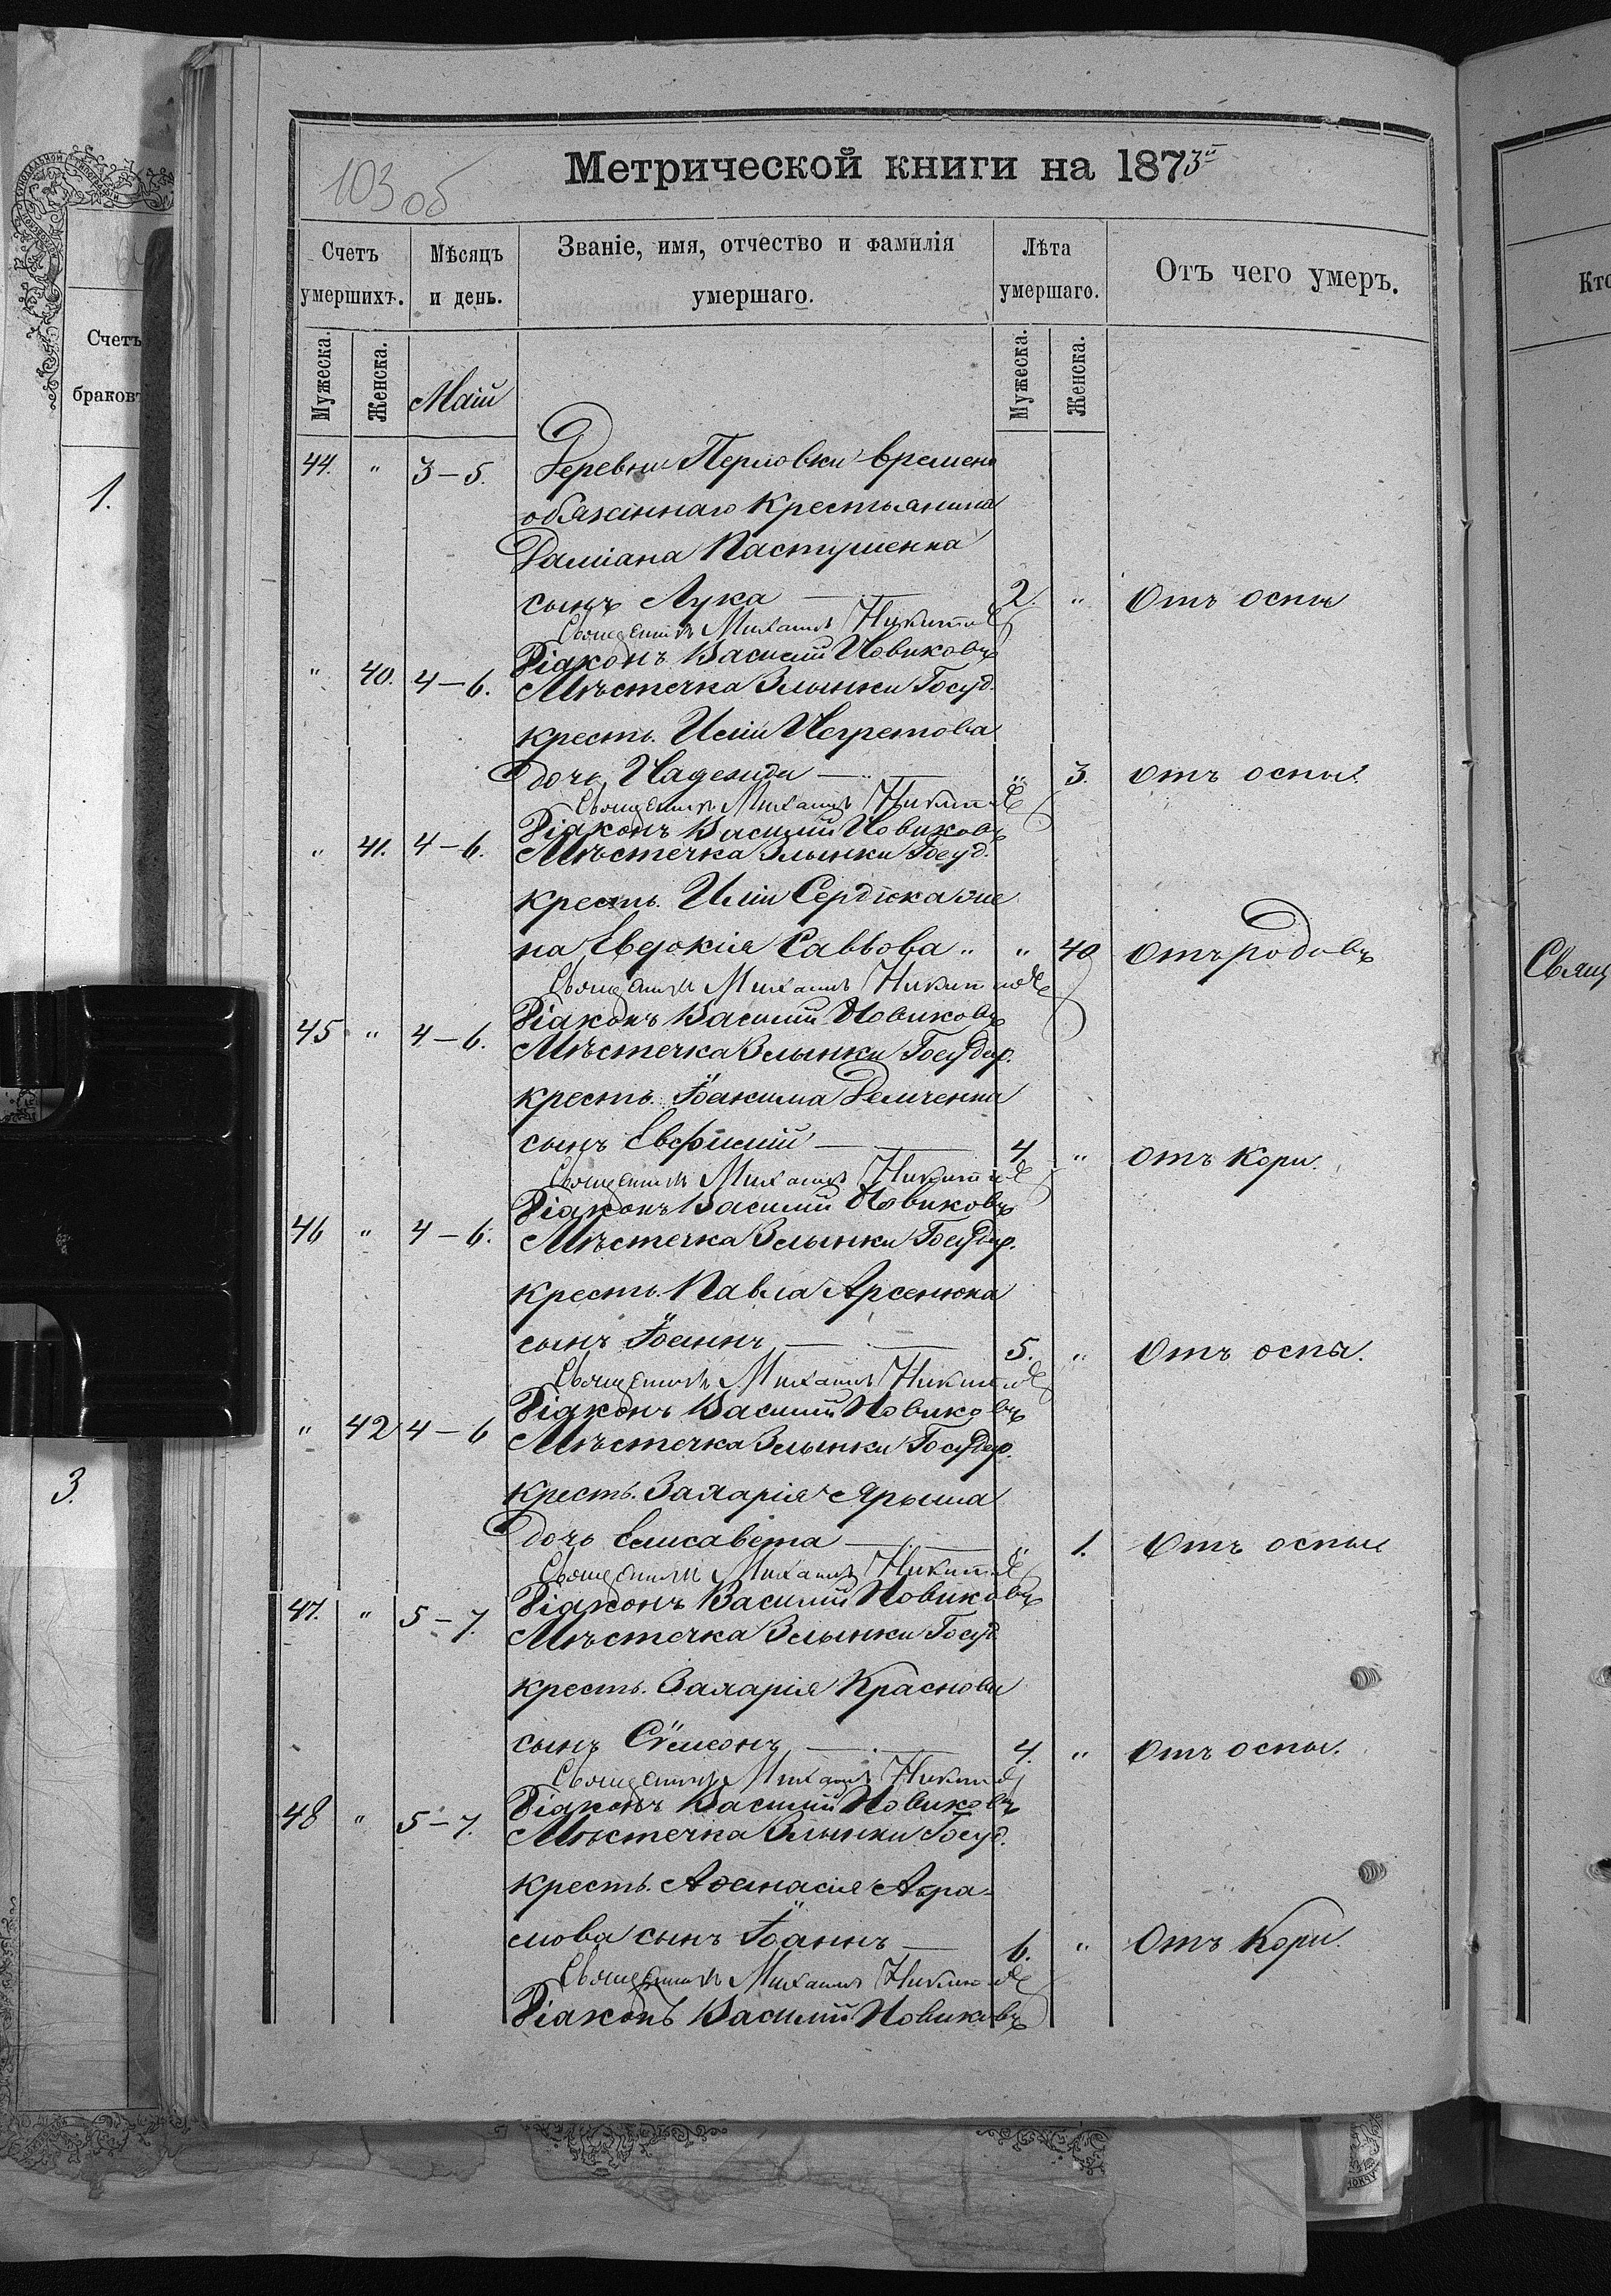 Метрической книги на 1873й
103 об
Счетъ умершихъ.
Мѣсяцъ и день.
Званіе, имя, отчество и фамилія умершаго.
Лѣта умершаго.
Отъ чего умеръ.
Мужеска.
Женска.
Маій
Мужеска.
Женска.
44. " 3-5. Деревни Перловки времено
обязаннаго крестьянина
Даміана Пастушенка
сынъ Лука 2. " Отъ оспы
Священникъ Михаилъ
Діаконъ Василій Новиковъ
" 40. 4-6. Мѣстечка Злынки Госуд.
кресть. Иліи Негретова
дочь Надежда " 3. отъ оспы.
Священникъ Михаилъ
Діаконъ Василій Новиковъ
" 41. 4-6. Мѣстечка Злынки Госуд.
кресть. Иліи Сердюка же
на Евдокія Саввова " " 40 Отъ родовъ
Священникъ Михаилъ
Діаконъ Василій Новиковъ
45 " 4-6. Мѣстечка Злынки Государ.
кресть. Іоакима Демченка
сынъ Евфимій 4 " отъ кори.
Священникъ Михаилъ
Діаконъ Василій Новиковъ
46 " 4-6. Мѣстечка Злынки Государ.
кресть. Павла Арсенюка
сынъ Іоаннъ 5. " Отъ оспы.
Священникъ Михаилъ
Діаконъ Василій Новиковъ
" 42 4-6 Мѣстечка Злынки Государ.
кресть. Захарія Ярыша
дочь Елисавета " 1. Отъ оспы
Священникъ Михаилъ
Діаконъ Василій Новиковъ
47. " 5-7. Мѣстечка Злынки Госуд.
кресть. Захарія Краснова
сынъ Сѵмеонъ 4. " Отъ оспы.
Священникъ Михаилъ
Діаконъ Василій Новиковъ
48 " 5-7. Мѣстечка Злынки Госуд.
кресть. Аѳанасія Абра-
мова сынъ Іоаннъ 6. " Отъ Кори.
Священникъ Михаилъ
Діаконъ Василій Новиковъ
Счетъ
браковъ
1.
3.
Кто
Свящ